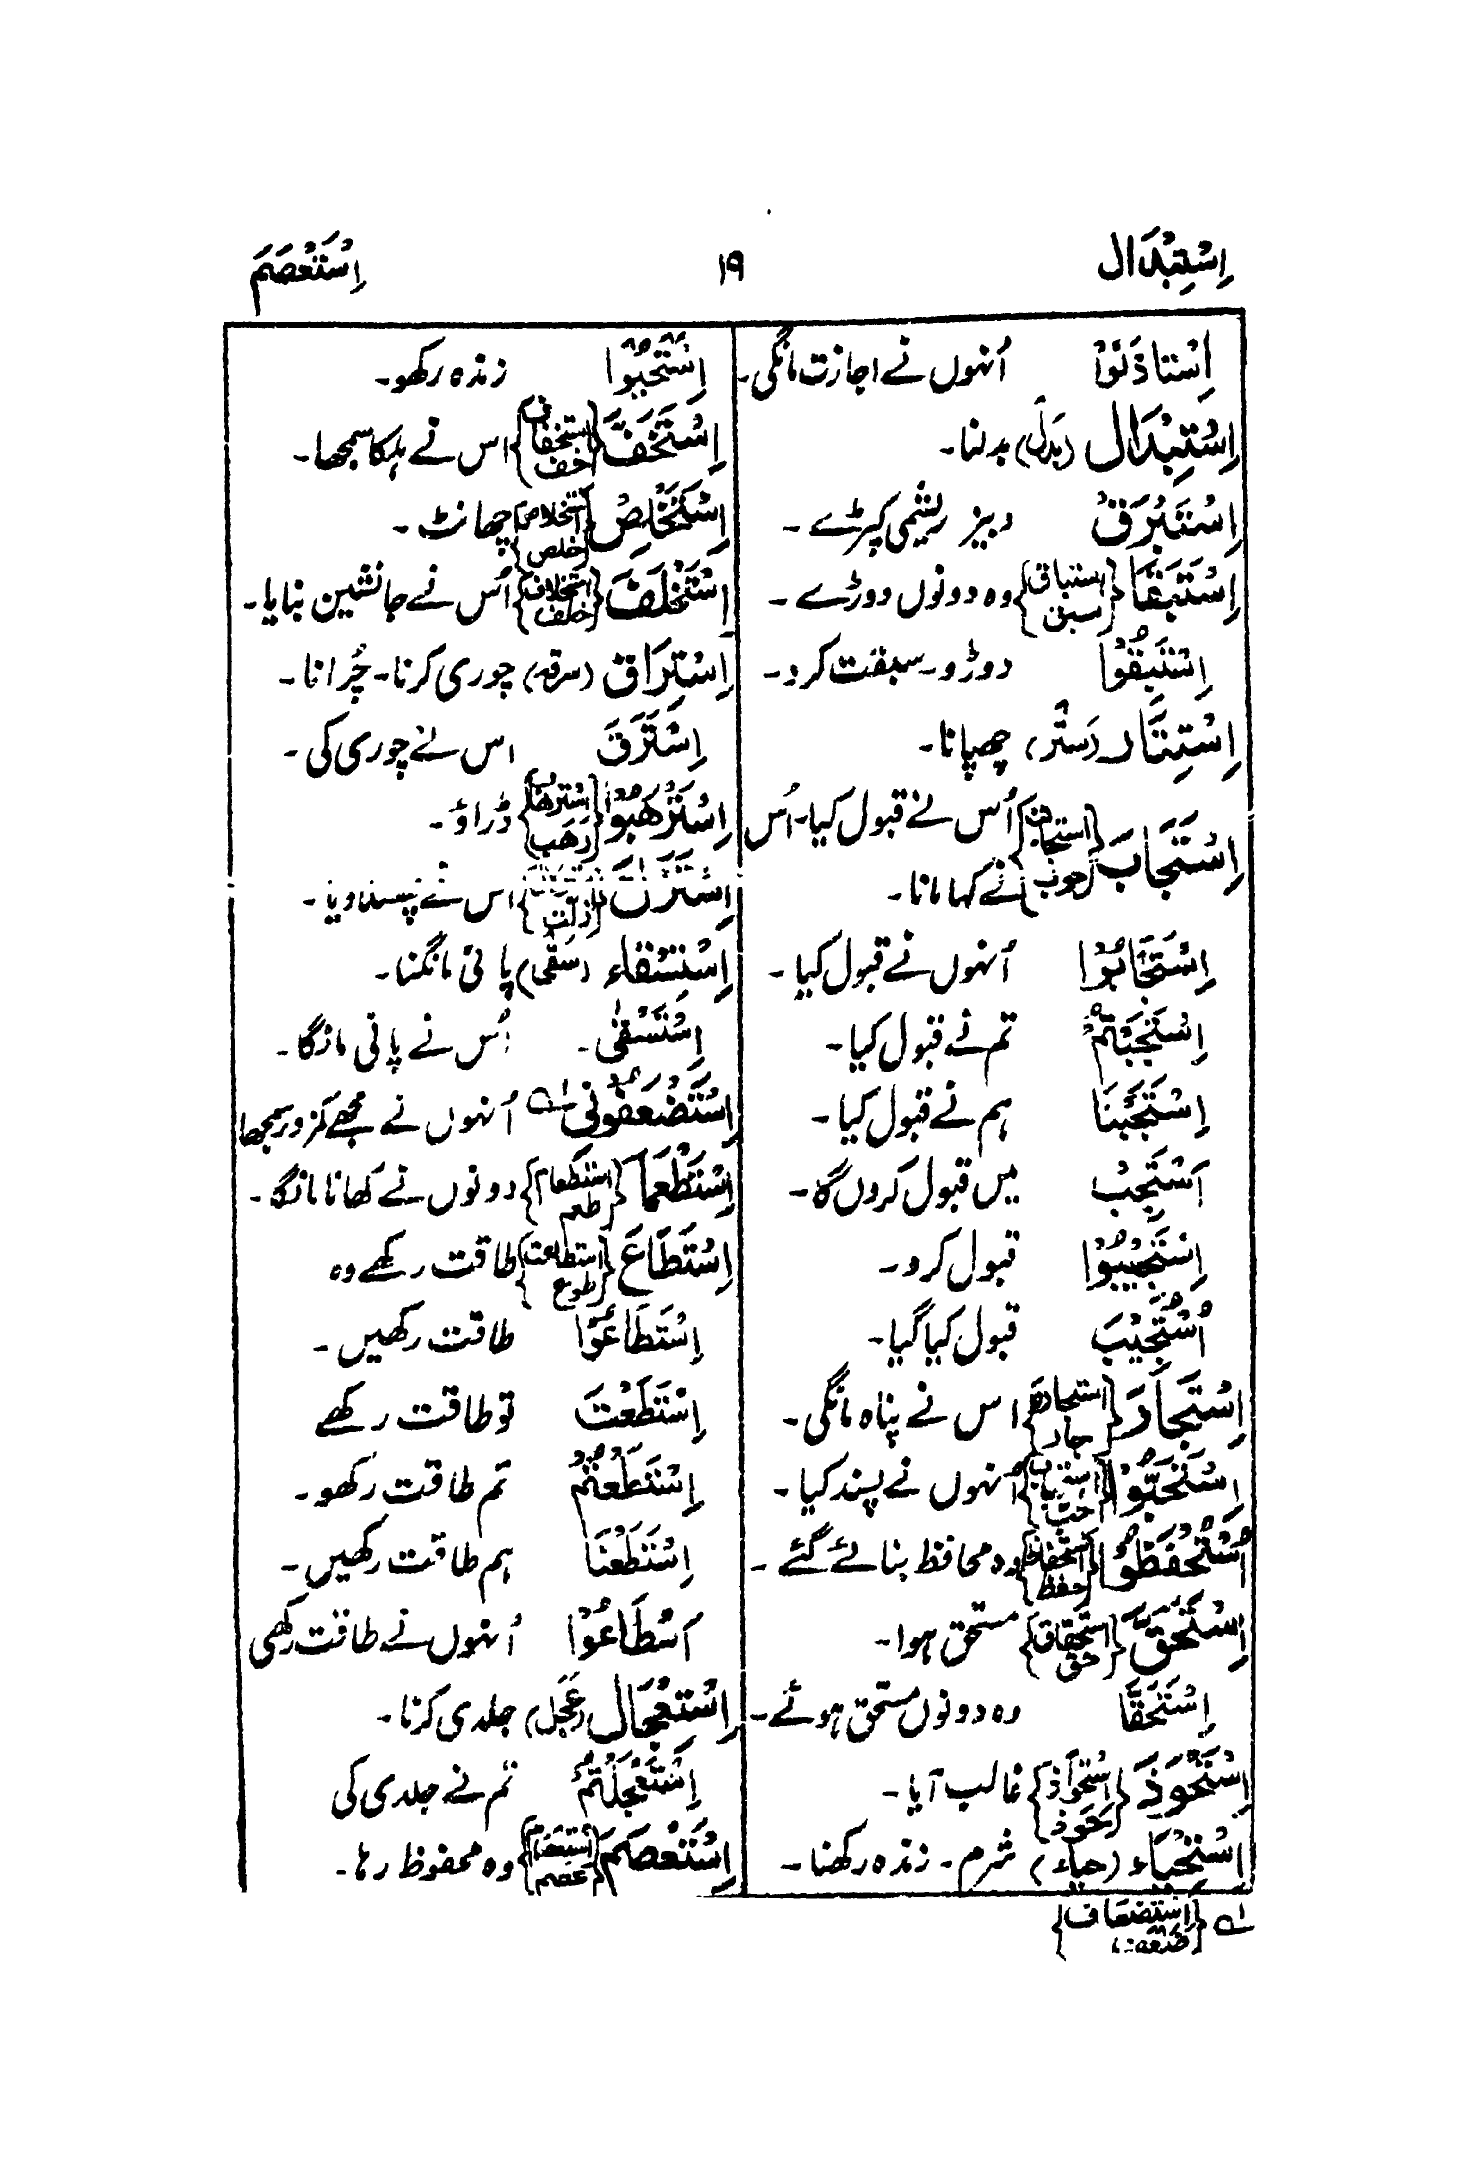 اِسْتِبْدَال ۱۹ اِسْتَعْصَمَ
اِسْتَاذَنُوْا اُنہوں نے اجازت مانگی۔
اِسْتِبْدَال (بَدَلَ) بدلنا۔
اِسْتَبْرَقٌ دبیز ریشمی کپڑے ۔
اِسْتَبَقَا {استباق سبق} وہ دونوں دوڑے ۔
اِسْتَبِقُوْا دوڑو۔ سبقت کرو۔
اِسْتِتَار (سَتْر) چھپانا۔
اِسْتَجَابَ {استجابة جوب} اُس نے قبول کیا۔ اُس
نے کہا مانا۔
اِسْتَجَابُوْا اُنہوں نے قبول کیا ۔
اِسْتَجَبْتُمْ تم نے قبول کیا۔
اِسْتَجَبْنَا ہم نے قبول کیا ۔
اَسْتَجِبْ میں قبول کروں گا۔
اِسْتَجِيْبُوْا قبول کرو۔
اُسْتُجِيْبَ قبول کیا گیا۔
اِسْتَجَارَ {استجارة جار} اس نے پناہ مانگی۔
اِسْتَحَبُّوْا {استحباب حب} اُنہوں نے پسند کیا ۔
اُسْتُحْفِظُوْا {استحفاظ حفظ} وہ محافظ بنائے گئے ۔
اِسْتَحَقَّ {استحقاق حق} مستحق ہوا۔
اِسْتَحَقَّا وہ دونوں مستحق ہوئے۔
اِسْتَحْوَذَ {اِسْتِحْوَاذ حَوذ} غالب آیا۔
اِسْتِحْيَاء (حياء) شرم ۔ زندہ رکھنا۔
اِسْتَحْيُوْا زندہ رکھو۔
اِسْتَخَفَّ {استخفاف خف} اس نے ہلکا سمجھا۔
اِسْتَخْلِصْ {استخلاص خلص} چھانٹ ۔
اِسْتَخْلَفَ {استخلاف خلف} اُس نے جانشین بنایا۔
اِسْتِرَاق (سرقہ) چوری کرنا۔ چُرانا ۔
اِسْتَرَقَ اس نے چوری کی ۔
اِسْتَرْهَبُوْا {استرهاب رهب} ڈراؤ۔
اِسْتِسْقَاء (سقى) پانی مانگنا۔
اِسْتَسْقٰى ۔ اُس نے پانی مانگا۔
اِسْتَضْعَفُوْنِی ؎۱ اُنہوں نے مجھے کمزور سمجھا
اِسْتَطْعَمَا {استطعام طعم} دونوں نے کھانا مانگا۔
اِسْتَطَاعَ {استطاعت طوع} طاقت رکھے وہ
اِسْتَطَاعُوْا طاقت رکھیں ۔
اِسْتَطَعْتَ تو طاقت رکھے
اِسْتَطَعْتُمْ تم طاقت رکھو۔
اِسْتَطَعْنَا ہم طاقت رکھیں ۔
اَسْطَاعُوْا اُنہوں نے طاقت رکھی
اِسْتِعْجَال (عَجَل) جلدی کرنا ۔
اِسْتَعْجَلْتُمْ تم نے جلدی کی
اِسْتَعْصَمَ {استعصام عصم} وہ محفوظ رہا۔
؎۱ {اِسْتِضْعَاف ضعف}